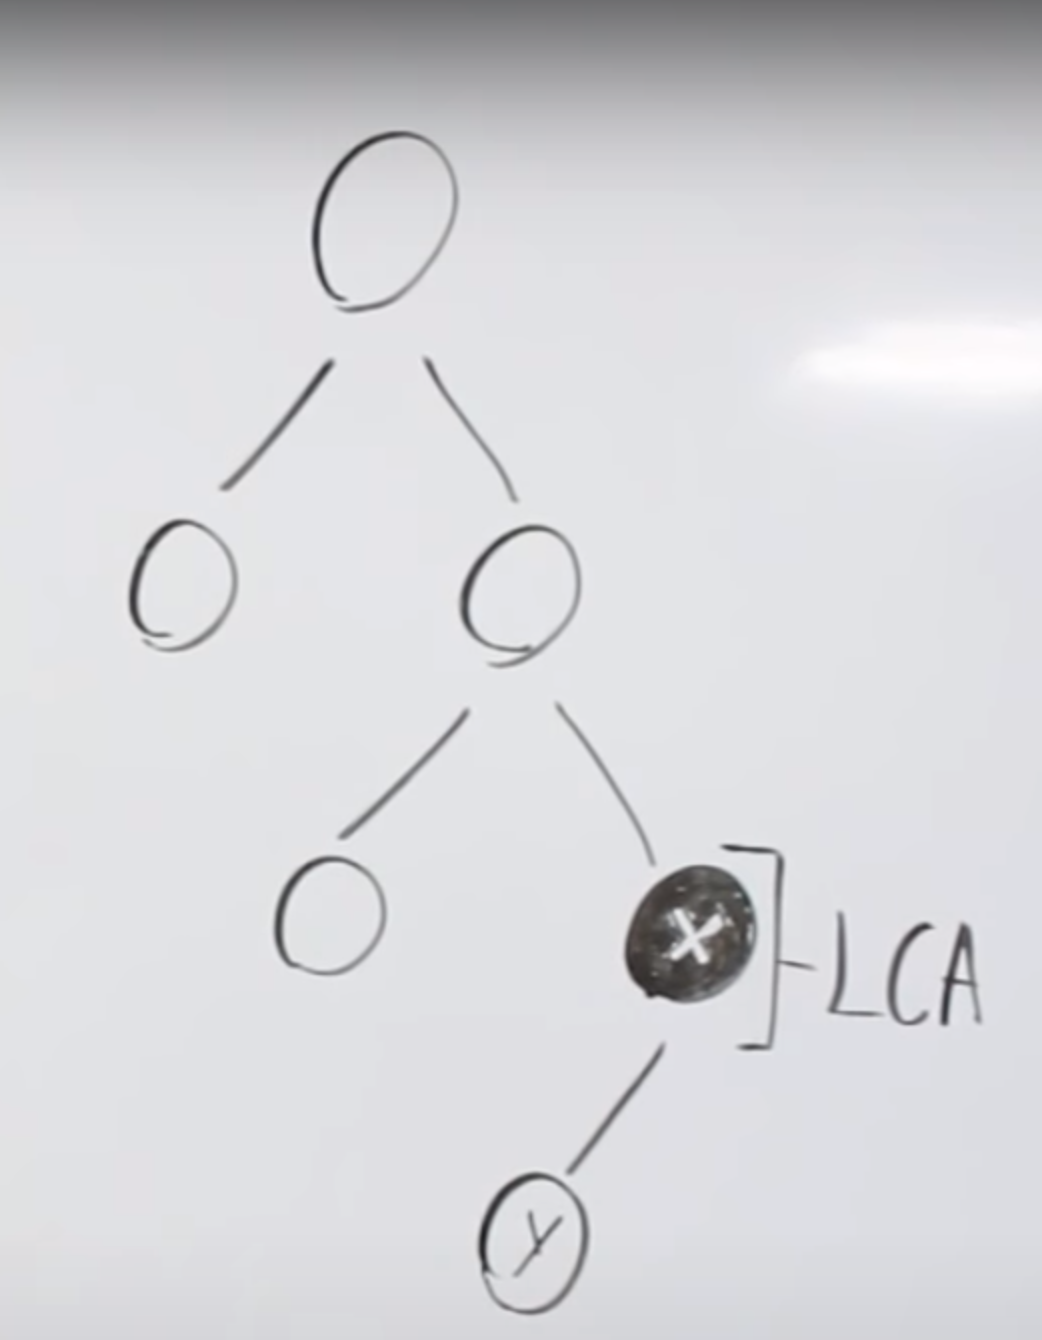 X
LCA
Y